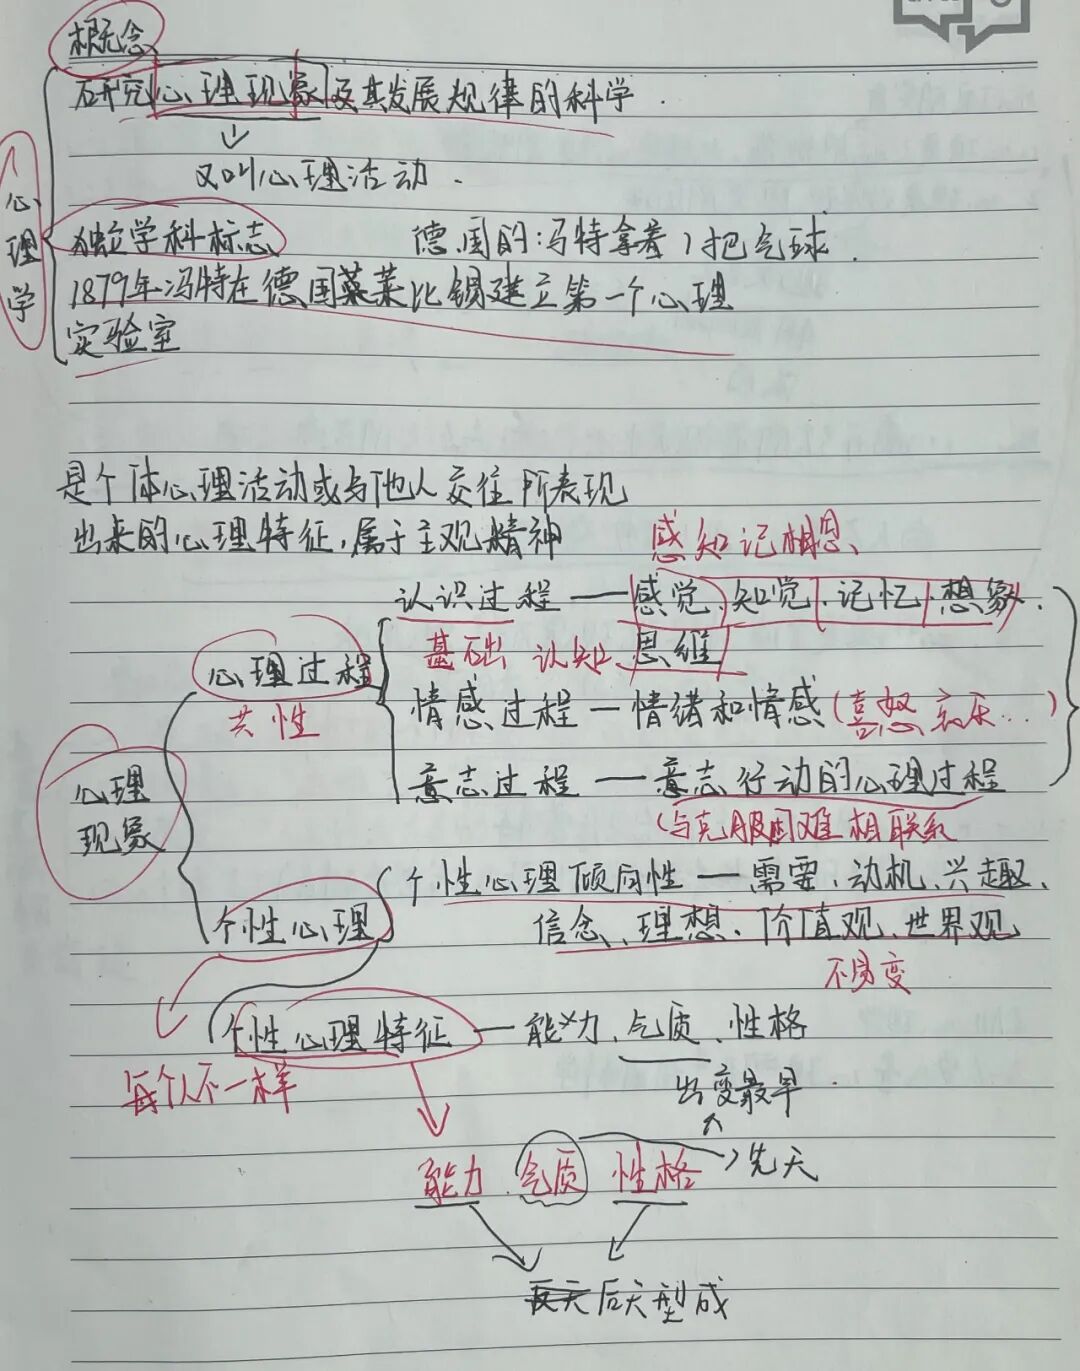 概念
研究心理现象及其发展规律的科学.
又叫心理活动.
心理学
独立学科标志 德国的冯特拿着1把气球.
1879年冯特在德国莱比锡建立第一个心理
实验室
是个体心理活动或与他人交往所表现
出来的心理特征,属于主观精神
感知记相思、
认识过程——感觉、知觉、记忆、想象、
基础 认知、思维
心理过程
共性
情感过程—情绪和情感(喜怒哀乐...)
意志过程——意志行动的心理过程
(与克服困难相联系
心理
现象
个性心理倾向性——需要、动机、兴趣、
个性心理
信念、理想、价值观、世界观
不易变
个性心理特征—能力、气质、性格
每个人不一样
出变最早.
能力、气质 性格 →先天
后天型成